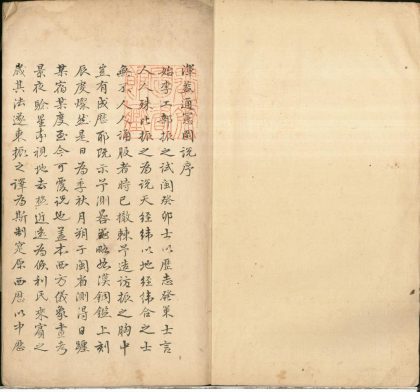 渾蓋通憲圖說序
始李工部振之試閩癸卯士以曆志發策士言
人人殊比振之為說天經緯以地經緯合之士
無不人人誦服者時已撤棘予造訪振之胸中
豈有成曆耶既示予測晷器略如漢銅鑑上刻
辰度燦然是日為季秋月朔于閩省測得日躔
某宿某度至今可覆說也蓋本西方儀象晝考
景夜驗星而視地去極近遠為候利氏來賓之
歲其法遂東振之譯為斯制定原西曆以中曆